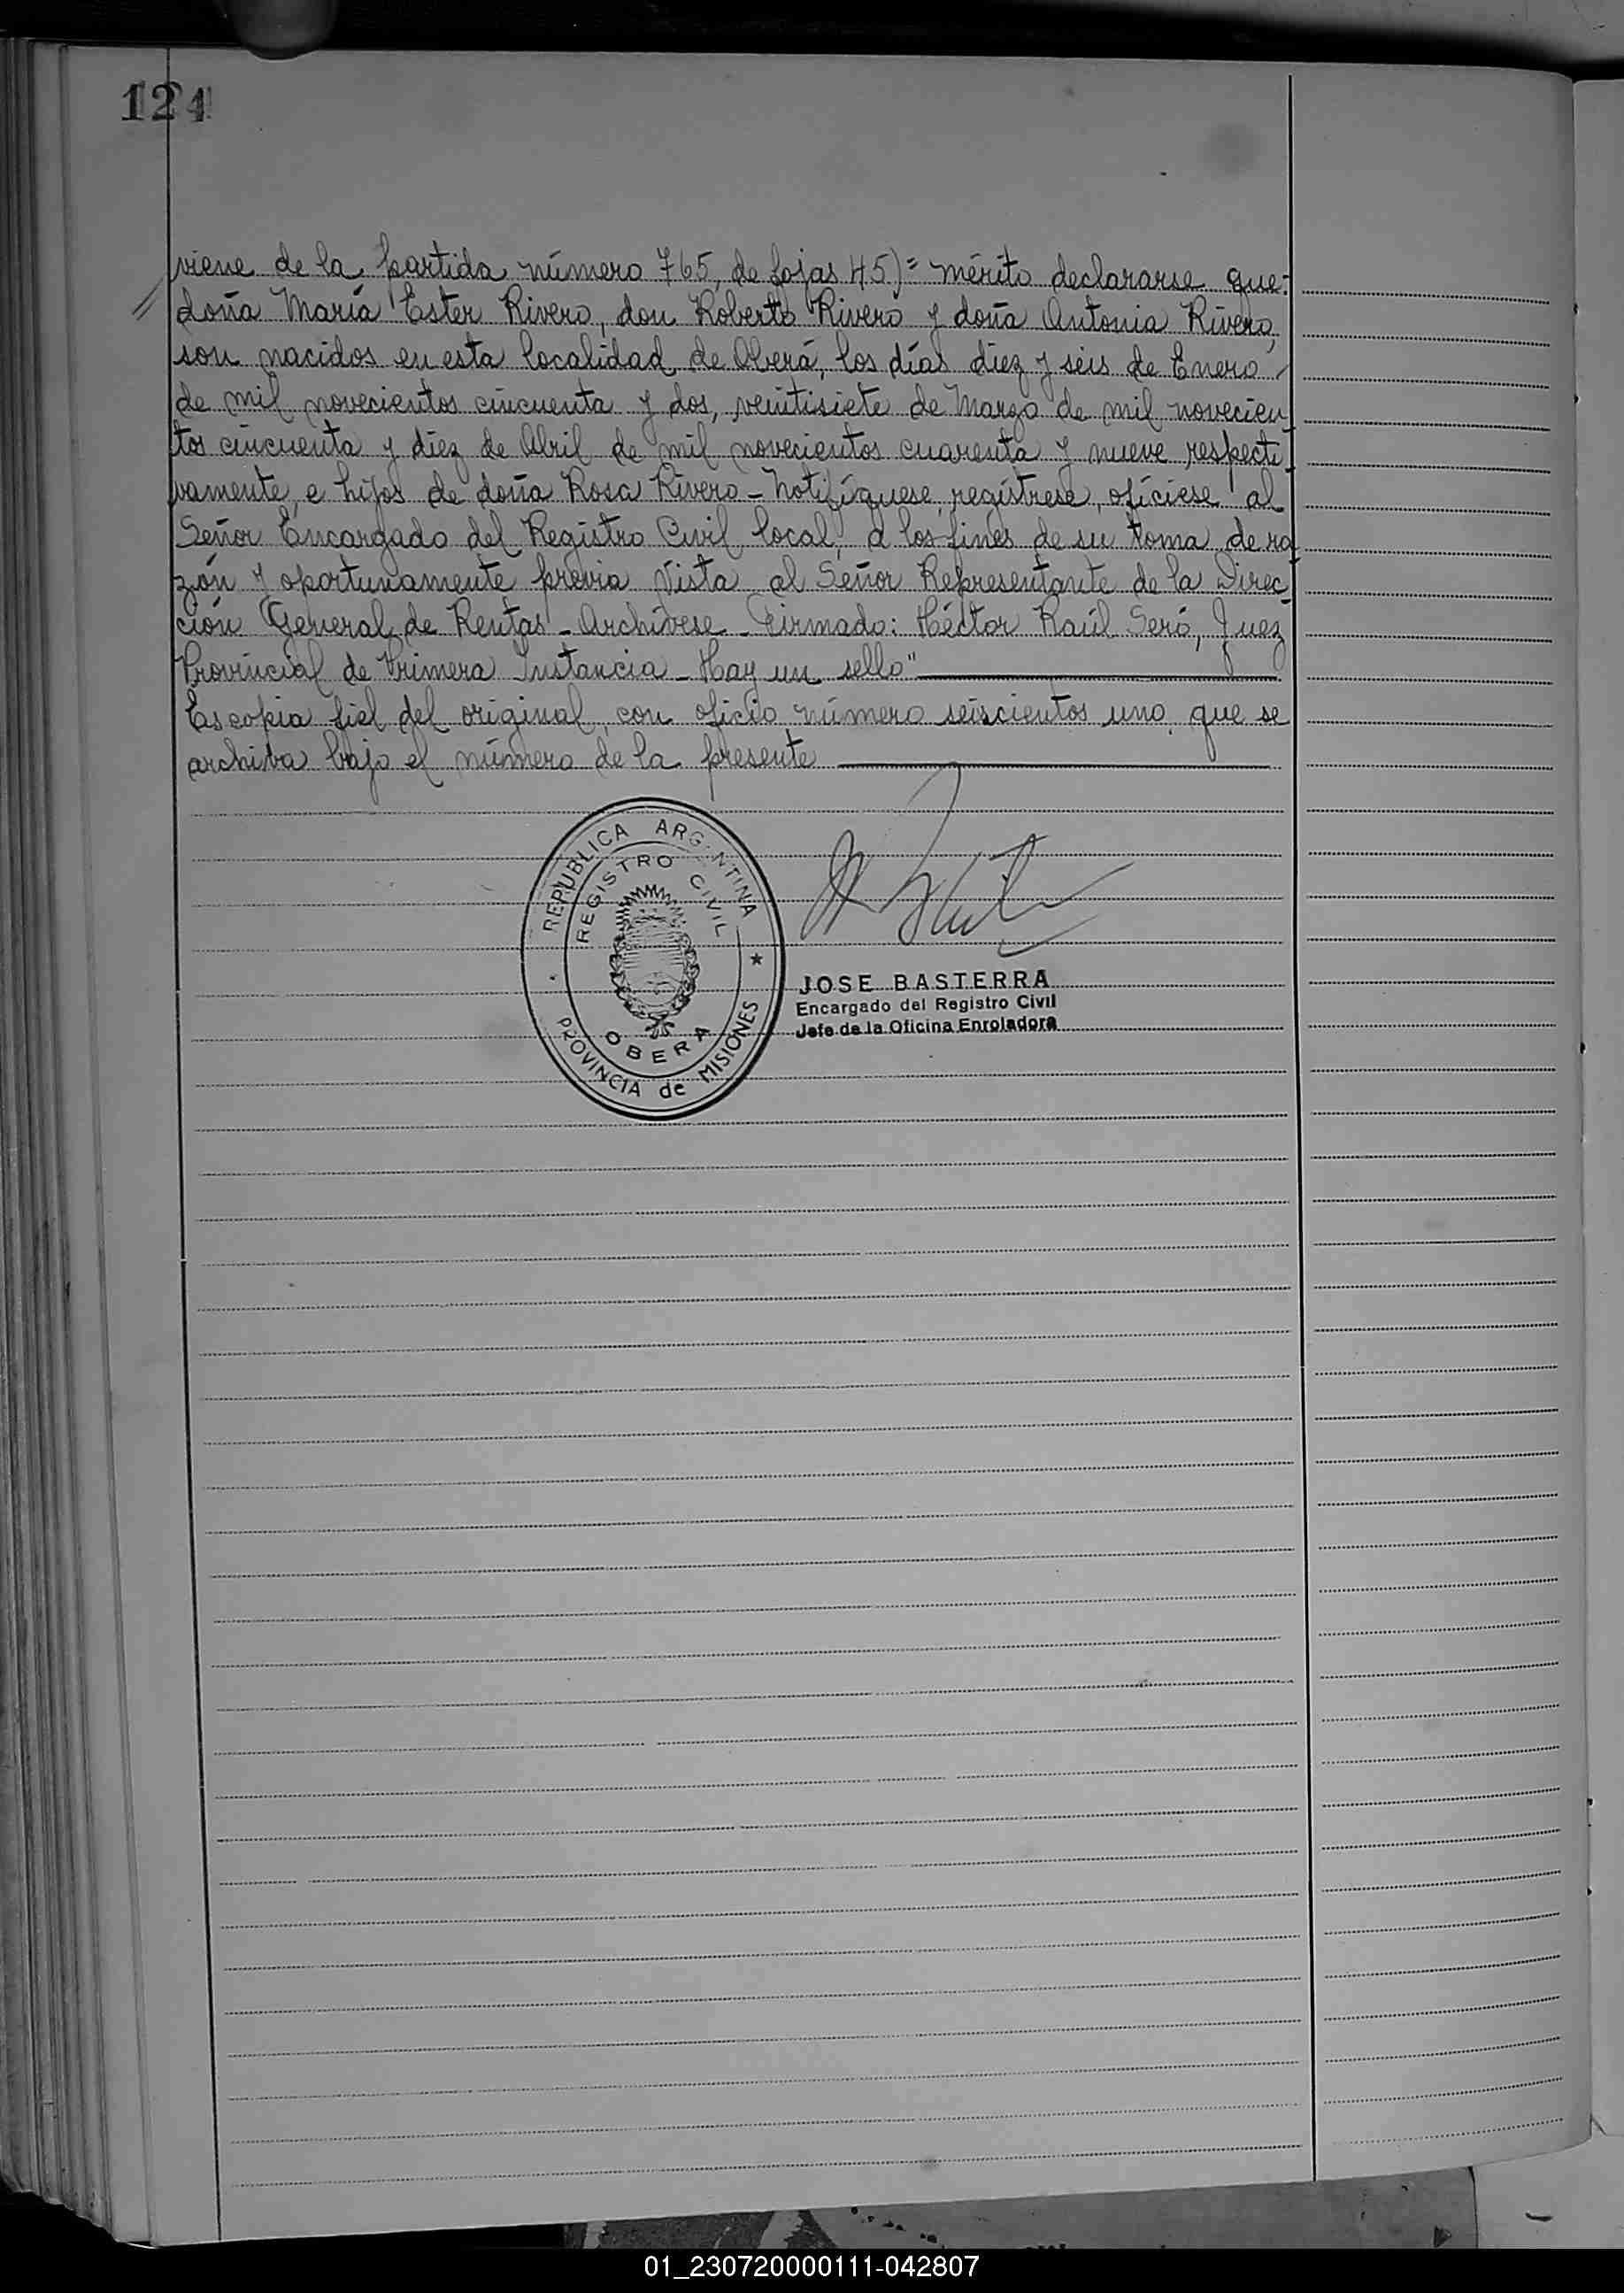 124
viene de la partida número 765, de fojas 45)= mérito declararse que:
// doña María Ester Rivero, don Roberto Rivero y doña Antonia Rivero,
son nacidos en esta localidad de Oberá, los días diez y seis de Enero
de mil novecientos cincuenta y dos, veintisiete de Marzo de mil novecien
tos cincuenta y diez de Abril de mil novecientos cuarenta y nueve respecti
vamente, e hijos de doña Rosa Rivero - Notifíquese, regístrese, ofíciese al
Señor Encargado del Registro Civil local, a los fines de su toma de ra
zón y oportunamente previa vista al Señor Representante de la Direc-
ción General de Rentas - Archívese - Firmado: Héctor Raúl Seró, Juez
Provincial de Primera Instancia - Hay un sello"
Es copia fiel del original, con oficio número seiscientos uno, que se
archiva bajo el número de la presente
REPUBLICA ARGENTINA
REGISTRO CIVIL
OBERA
PROVINCIA de MISIONES
JOSE BASTERRA
Encargado del Registro Civil
Jefe de la Oficina Enroladora
01_230720000111-042807